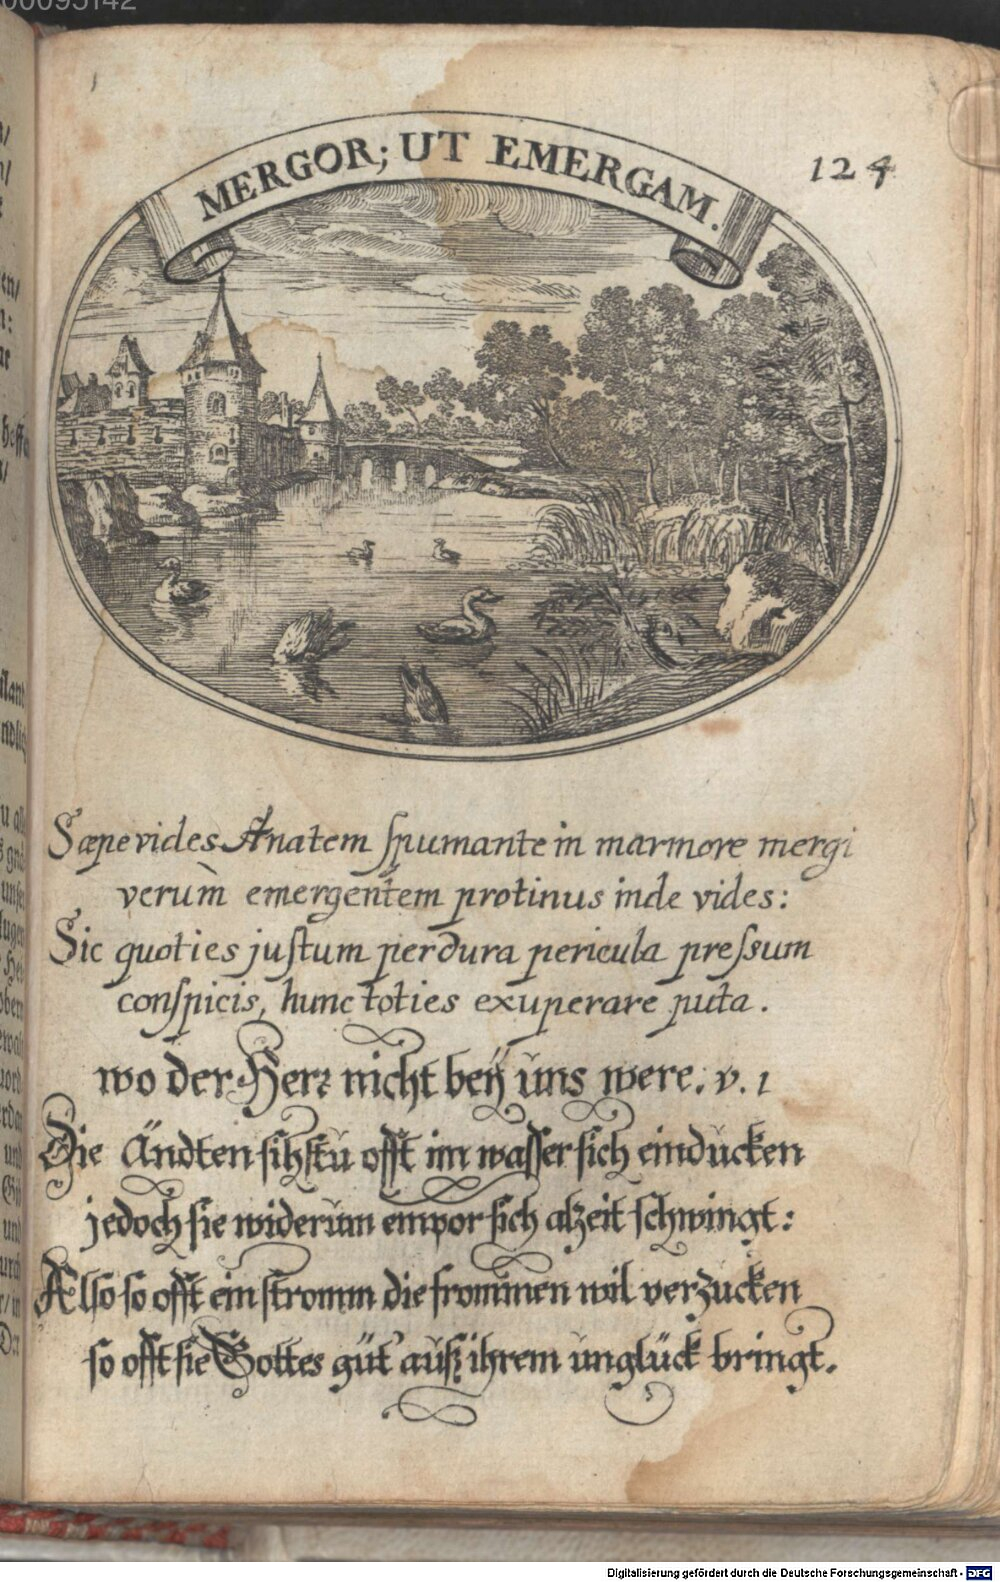 00095142
124
MERGOR; UT EMERGAM.
Sæpe vides Anatem ſpumante in marmore mergi
verum̀ emergentem protinus inde vides:
Sic quoties juſtum per dura pericula preſsum
conſpicis, hunc toties exuperare puta.
wo der Herr nicht beÿ uns were. v. 1
Die Ändten sihſtu offt im waſſer sich eindücken
jedoch sie widerum empor sich alzeit ſchwingt:
Alſo so offt ein ſtromm die frommen wil verzucken
so offt sie Gottes güt auß ihrem unglück bringt.
Digitalisierung gefördert durch die Deutsche Forschungsgemeinschaft - DFG